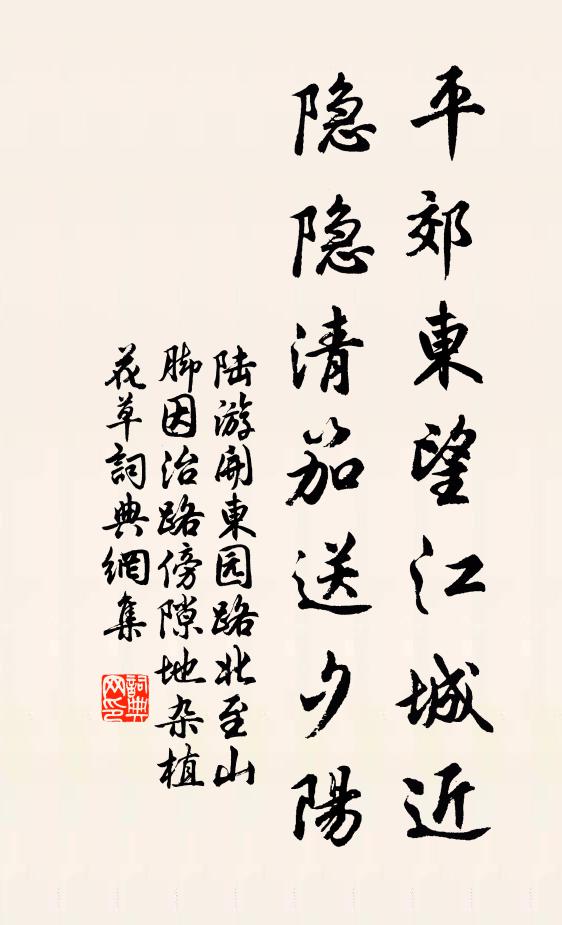 平郊東望江城近
隐隐清笳送夕陽
陆游開東园路北至山
脚因治路傍隙地杂植
花草詞典網集
詞典网印